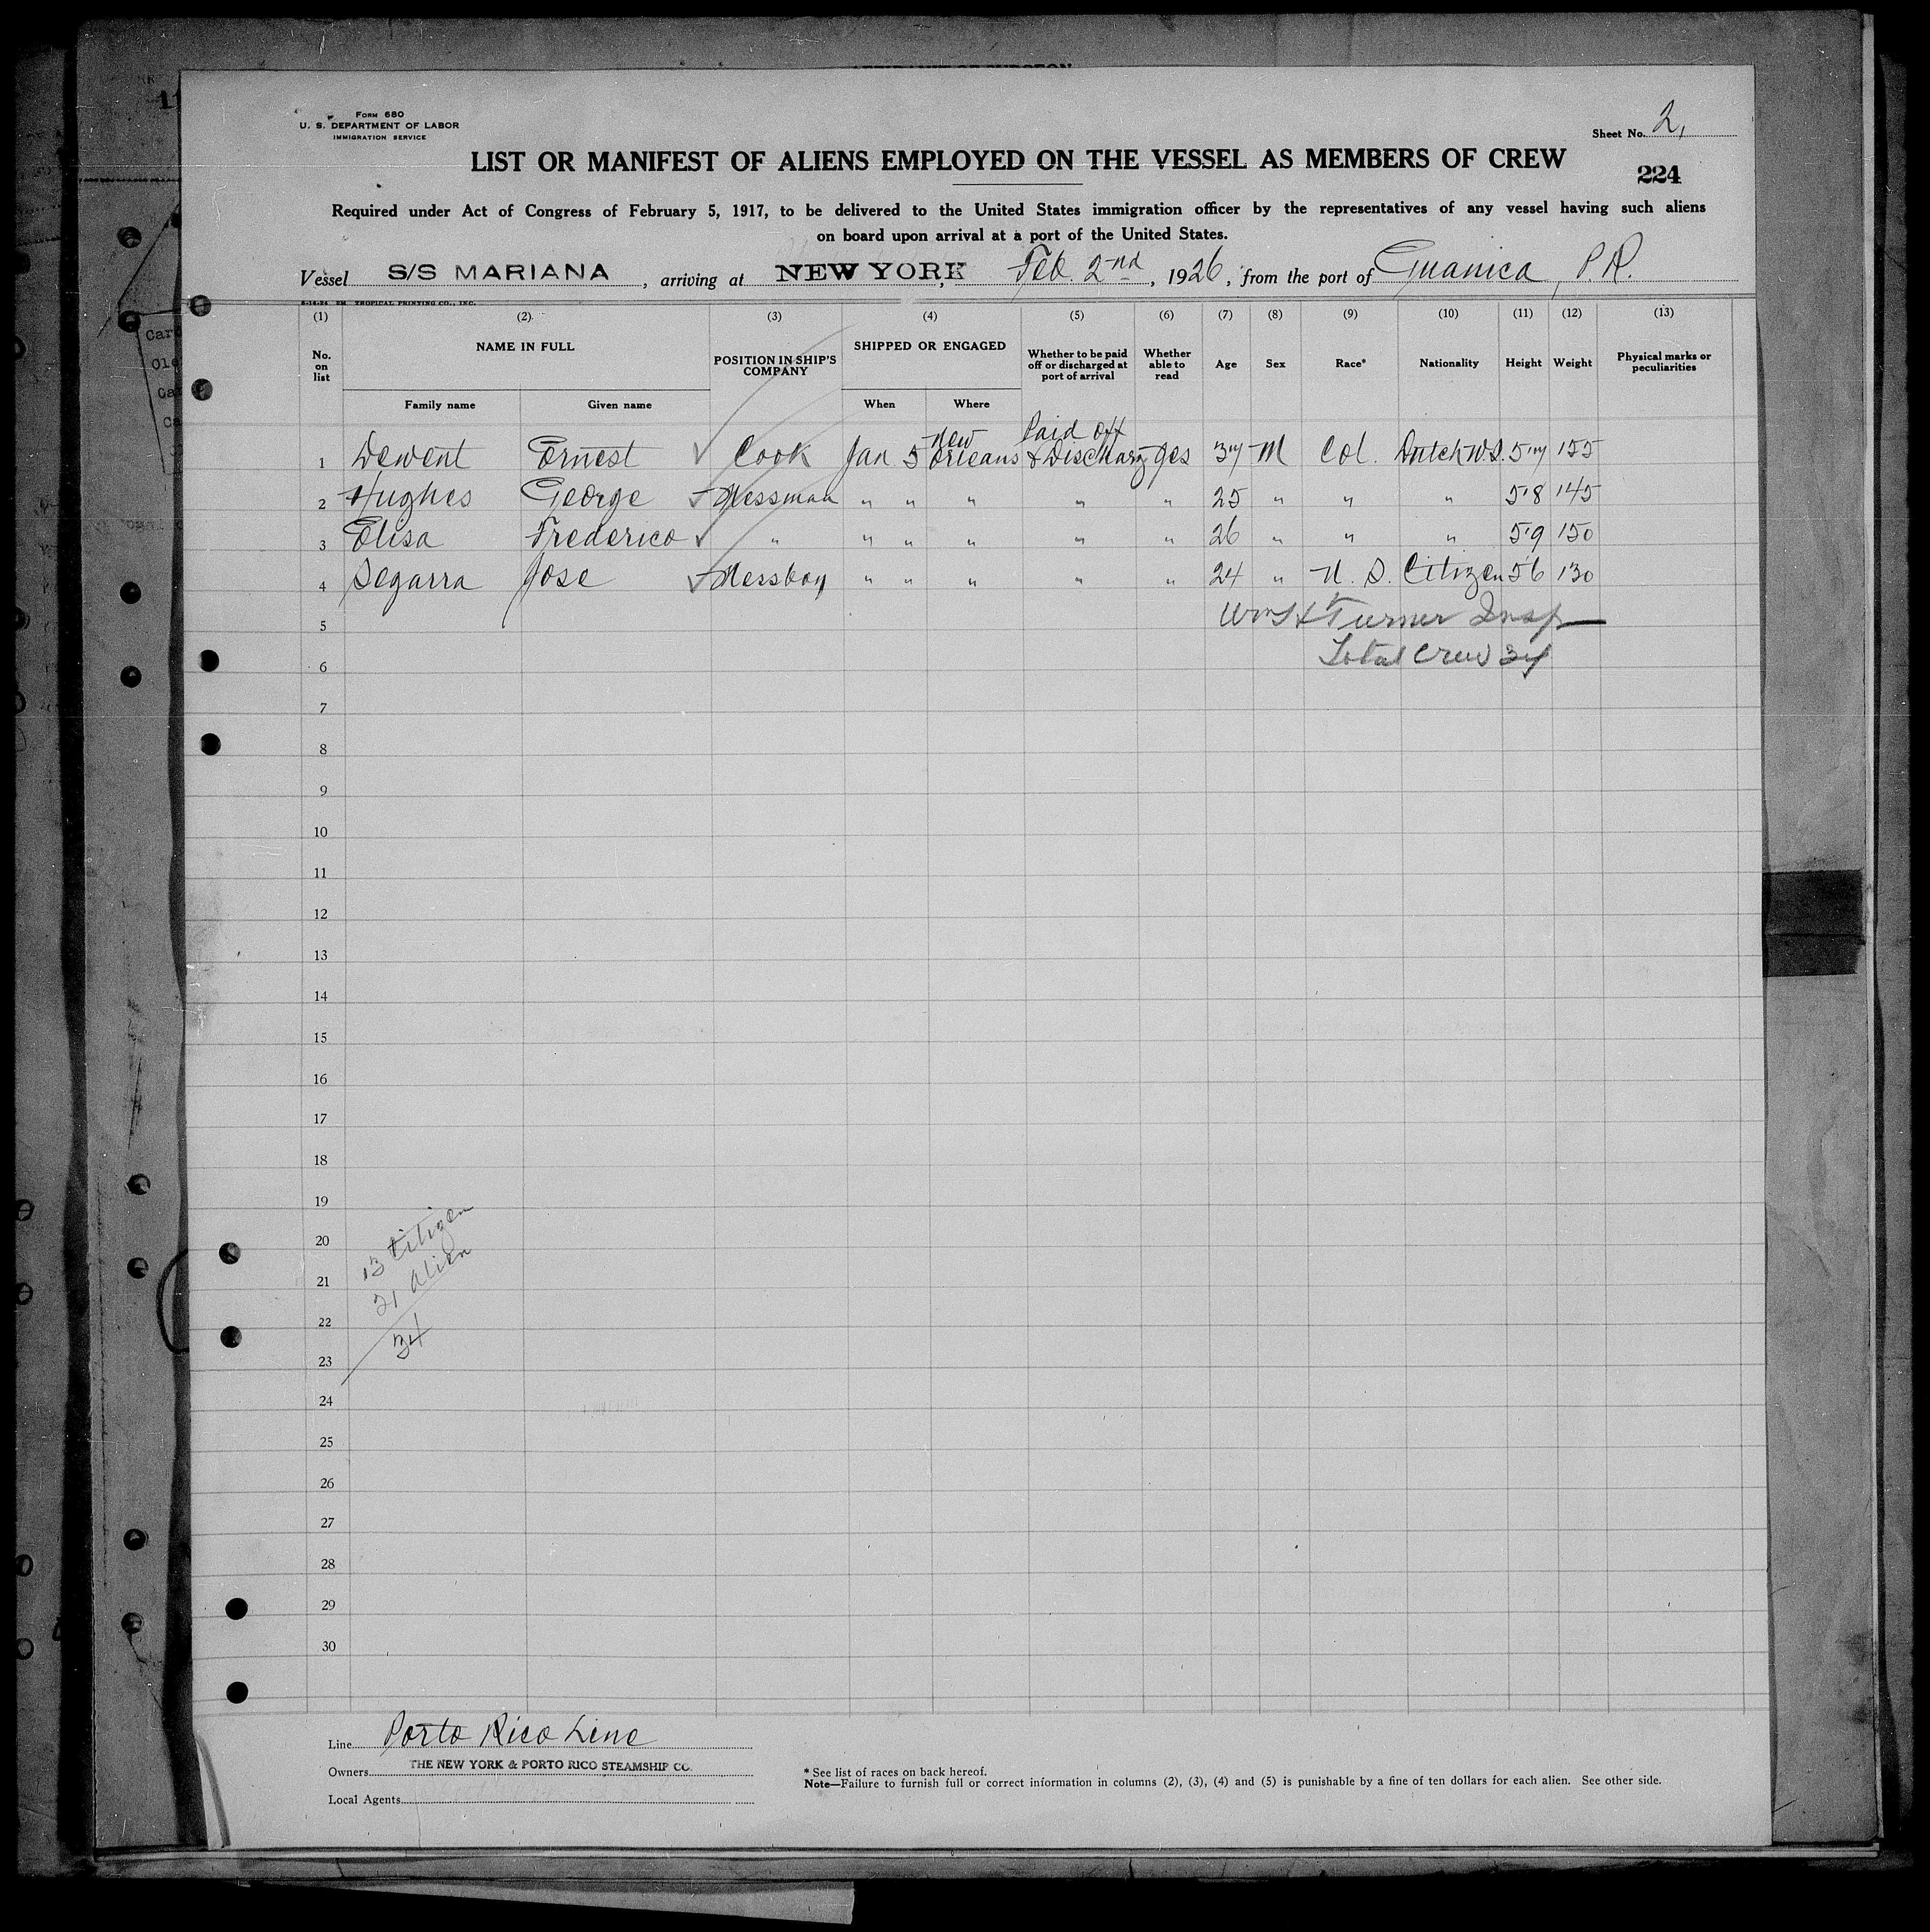 Form 680
U. S. DEPARTMENT OF LABOR
IMMIGRATION SERVICE
Sheet No. 2,
LIST OR MANIFEST OF ALIENS EMPLOYED ON THE VESSEL AS MEMBERS OF CREW
224
Required under Act of Congress of February 5, 1917, to be delivered to the United States immigration officer by the representatives of any vessel having such aliens
on board upon arrival at a port of the United States.
Vessel S/S MARIANA, arriving at NEW YORK, Feb. 2nd, 1926, from the port of Guanica, P.R.
TROPICAL PRINTING CO., INC.
(1) (2) (3) (4) (5) (6) (7) (8) (9) (10) (11) (12) (13)
No. on list NAME IN FULL POSITION IN SHIP'S COMPANY SHIPPED OR ENGAGED Whether to be paid off or discharged at port of arrival Whether able to read Age Sex Race* Nationality Height Weight Physical marks or peculiarities
Family name Given name When Where
1 Dewent Ernest Cook Jan 5 New Orleans Paid off & Discharg yes 37 M Col. Dutch W.I. 5'7 155
2 Hughes George Messman " " " " " 25 " " " 5'8 145
3 Elisa Frederico " " " " " " 26 " " " 5'9 150
4 Segarra Jose Messboy " " " " " 24 " U. S. Citizen 5'6 130
5 Wm H Turner Insp
6 Total Crew 34
7
8
9
10
11
12
13
14
15
16
17
18
19
20
21
22
23
24
25
26
27
28
29
30
13 Citizen
21 Alien
34
Line Porto Rico Line
Owners THE NEW YORK & PORTO RICO STEAMSHIP CO.
Local Agents
* See list of races on back hereof.
Note—Failure to furnish full or correct information in columns (2), (3), (4) and (5) is punishable by a fine of ten dollars for each alien. See other side.